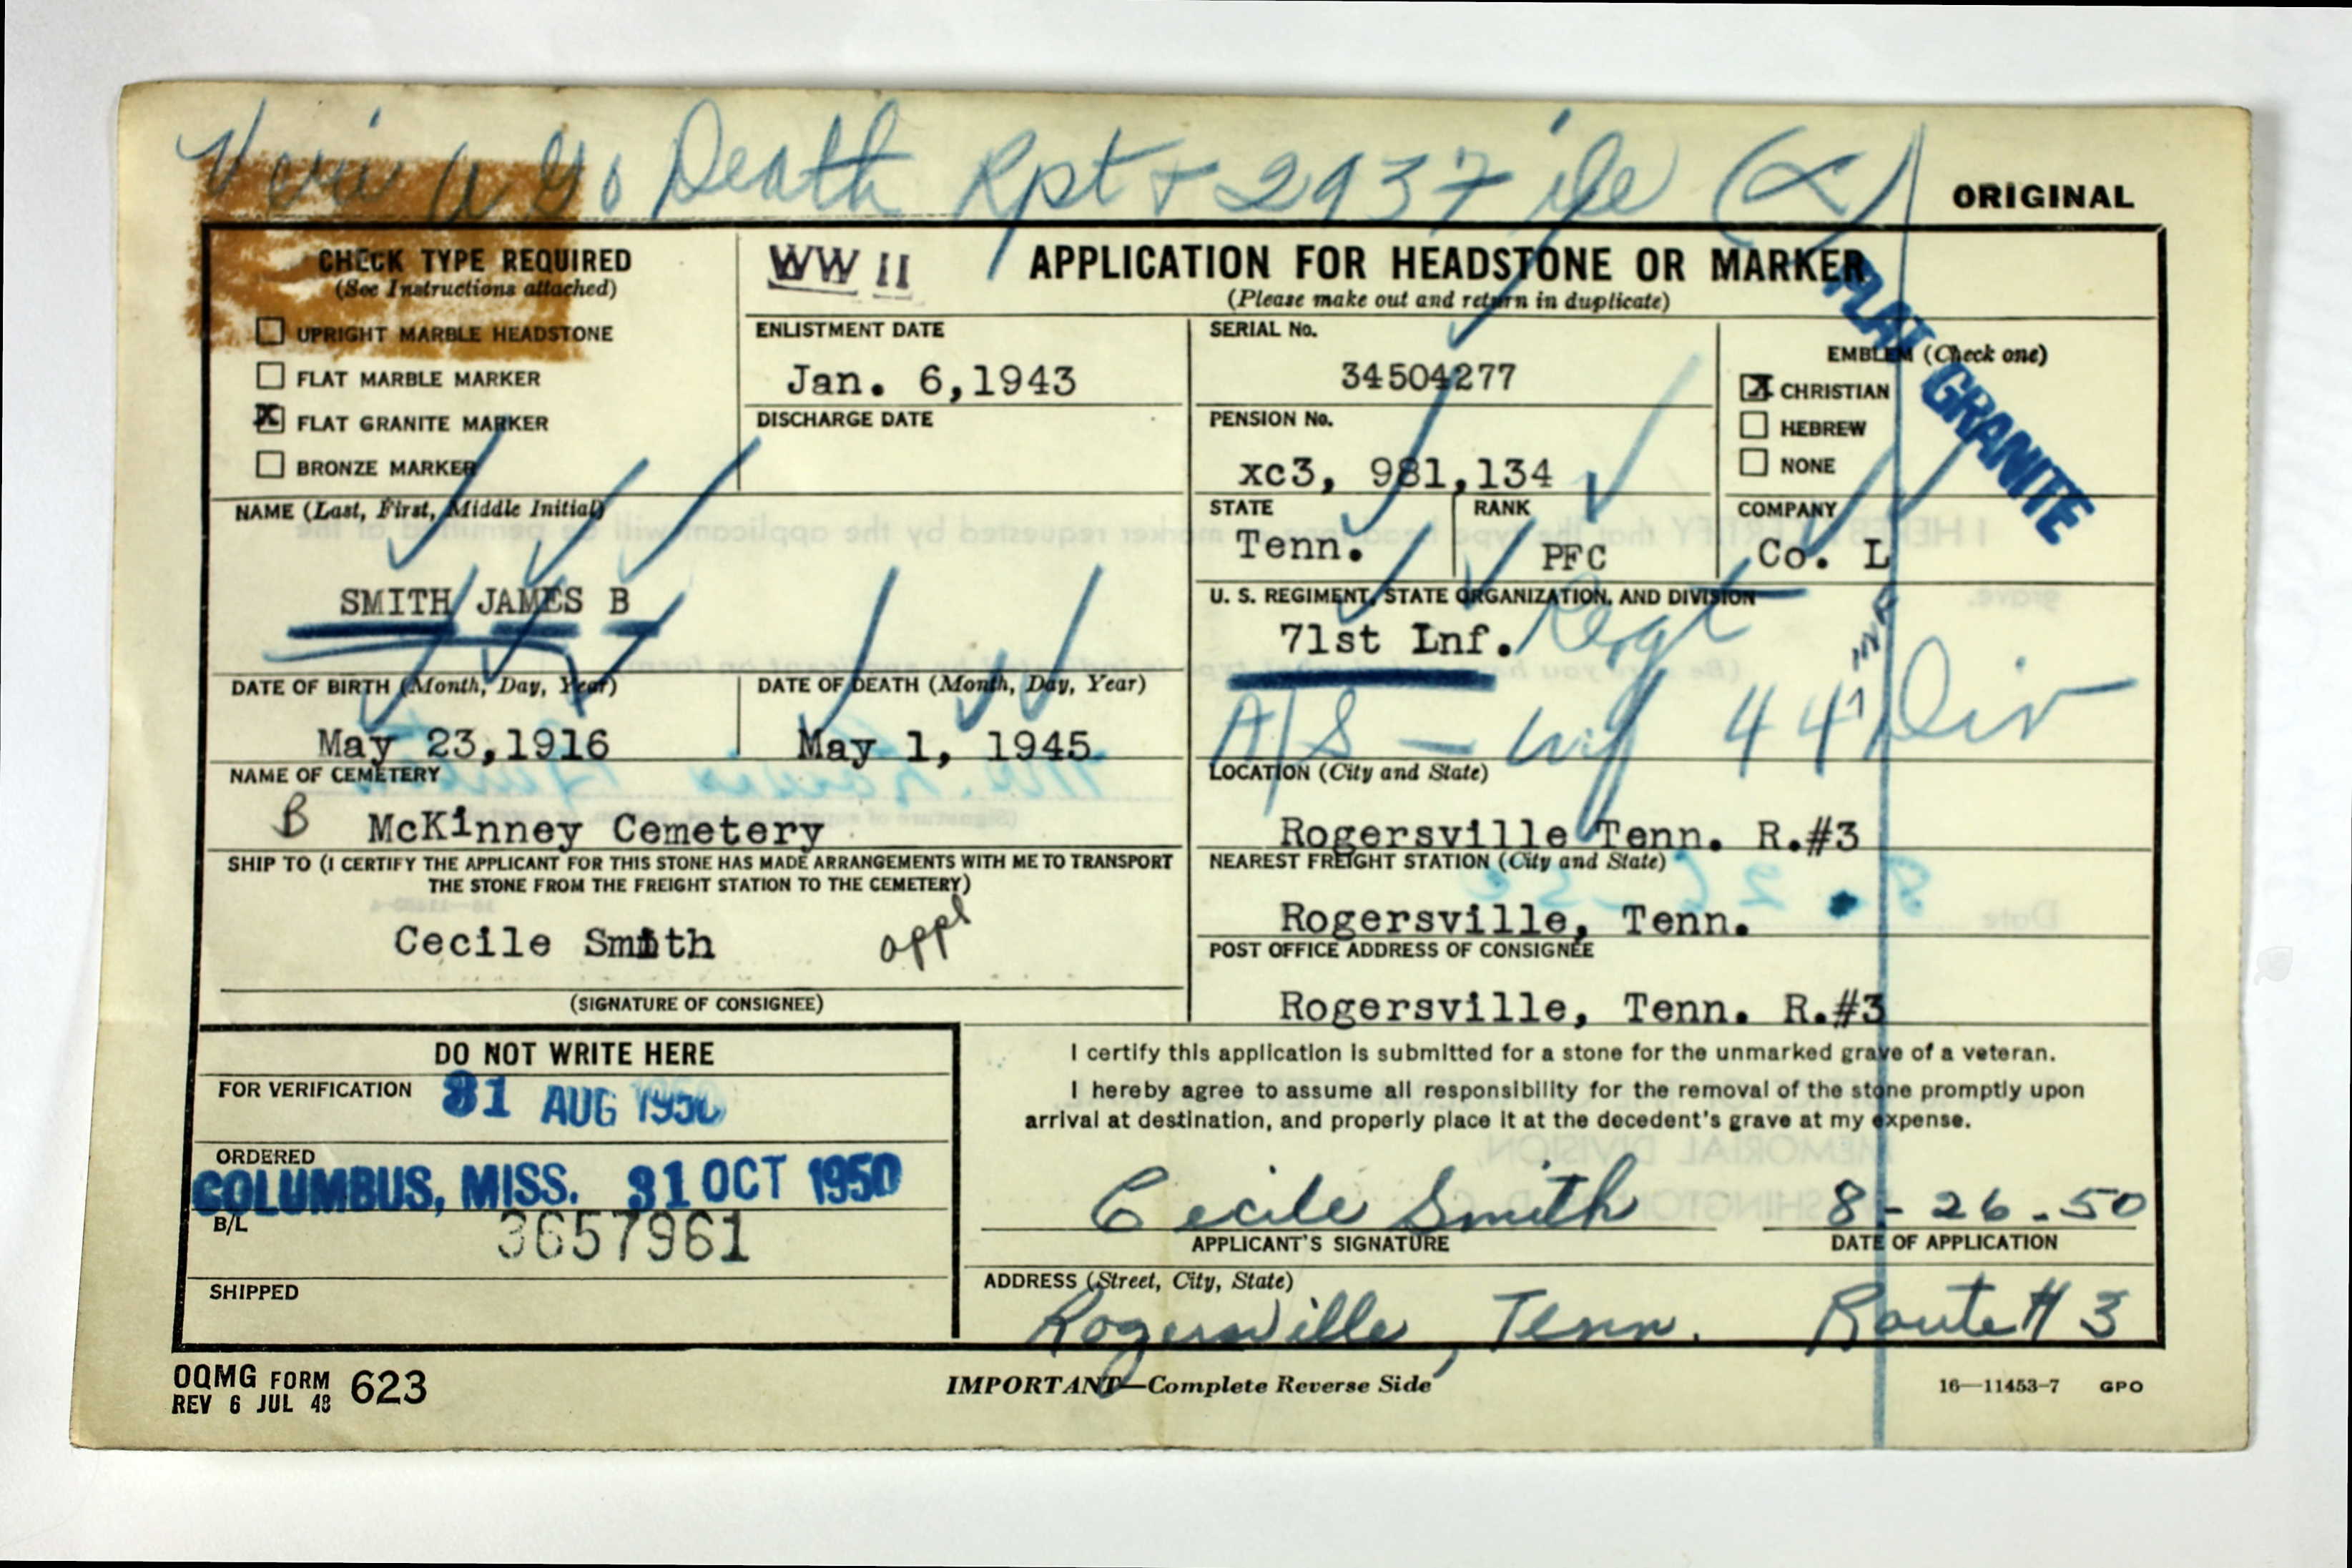 Veri A G O Death Rpt + 2937 ile (L)
ORIGINAL
CHECK TYPE REQUIRED
(See Instructions attached)
UPRIGHT MARBLE HEADSTONE
FLAT MARBLE MARKER
X FLAT GRANITE MARKER
BRONZE MARKER
WW II
APPLICATION FOR HEADSTONE OR MARKER
(Please make out and return in duplicate)
ENLISTMENT DATE
Jan. 6,1943
DISCHARGE DATE
SERIAL No.
34504277
PENSION No.
xc3, 981,134
EMBLEM (Check one)
X CHRISTIAN
HEBREW
NONE
FLAT GRANITE
NAME (Last, First, Middle Initial)
SMITH JAMES B
STATE
Tenn.
RANK
PFC
COMPANY
Co. L
U. S. REGIMENT, STATE ORGANIZATION, AND DIVISION
71st Inf. Regt
A/S - Inf 44 Div
DATE OF BIRTH (Month, Day, Year)
May 23,1916
DATE OF DEATH (Month, Day, Year)
May 1, 1945
NAME OF CEMETERY
B McKinney Cemetery
LOCATION (City and State)
Rogersville Tenn. R.#3
SHIP TO (I CERTIFY THE APPLICANT FOR THIS STONE HAS MADE ARRANGEMENTS WITH ME TO TRANSPORT
THE STONE FROM THE FREIGHT STATION TO THE CEMETERY)
Cecile Smith appl
(SIGNATURE OF CONSIGNEE)
NEAREST FREIGHT STATION (City and State)
Rogersville, Tenn.
POST OFFICE ADDRESS OF CONSIGNEE
Rogersville, Tenn. R.#3
DO NOT WRITE HERE
FOR VERIFICATION 31 AUG 1950
ORDERED
COLUMBUS, MISS. 31 OCT 1950
B/L 3657961
SHIPPED
I certify this application is submitted for a stone for the unmarked grave of a veteran.
I hereby agree to assume all responsibility for the removal of the stone promptly upon
arrival at destination, and properly place it at the decedent's grave at my expense.
Cecile Smith 8-26-50
APPLICANT'S SIGNATURE DATE OF APPLICATION
ADDRESS (Street, City, State)
Rogersville, Tenn. Route # 3
OQMG FORM 623
REV 6 JUL 48
IMPORTANT—Complete Reverse Side
16—11453-7 GPO